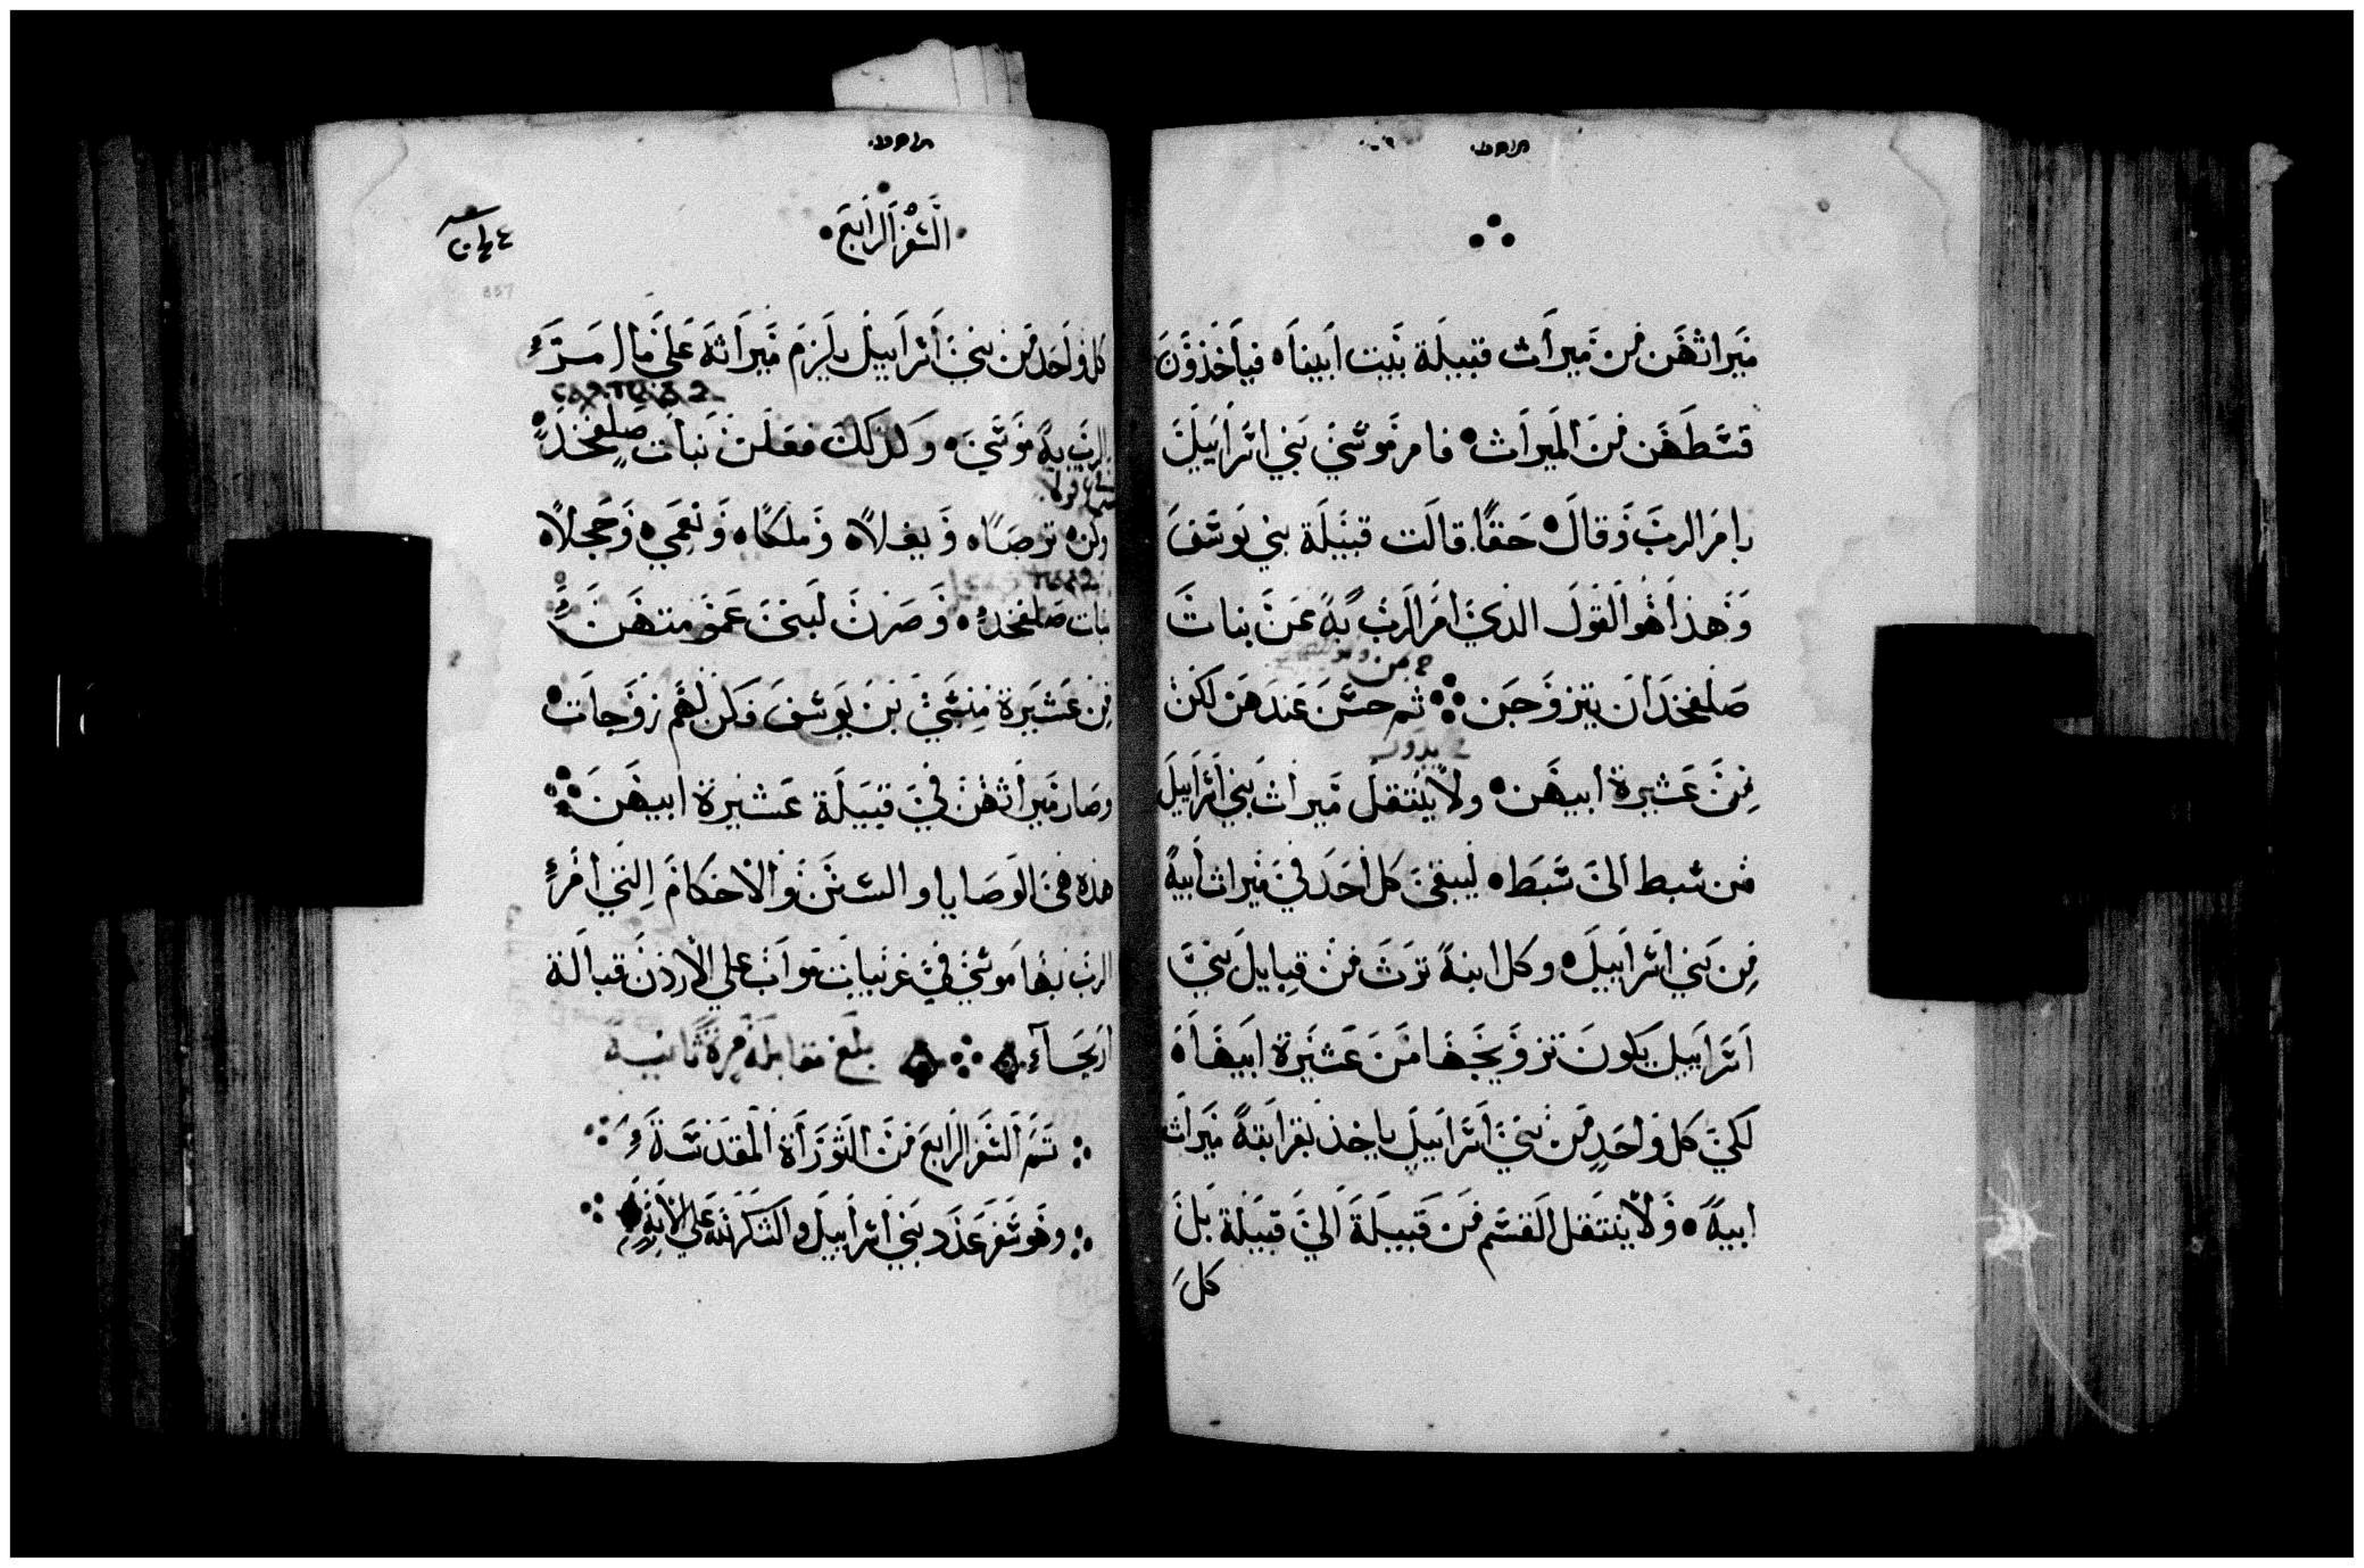 ميراثهن من ميراث قبيلة بيت ابينا ه فياخذون
قسطهن من الميراث ه فامر موسي بني اسراييل
بامر الرب وقال ه حقا قالت قبيلة بني يوسف
وهذا هو القول الذي امر الرب به عن بنات
صلفخد ان يتزوجن ثم حسن عندهن لكن
من عشيرة ابيهن ه ولا ينتقل ميراث بني اسراييل
من سبط الي سبط ه ليبقي كل احد في ميراث ابيه
من بني اسراييل ه وكل ابنة ترث من قبايل بني
اسراييل يكون تزويجها من عشيرة ابيها ه
لكي كل واحد من بني اسراييل ياخذ بقرابته ميراث
ابيه ه ولا ينتقل القسم من قبيلة الي قبيلة بل
كل
السفر الرابع
كل واحد من بني اسراييل يلزم ميراثه علي ما امر
الرب به موسي ه ولذلك فعلن بنات صلفخد
وكن ه ترصا ه ويغلا ه وملكا ه ونعمي ه وحجلا ه
بنات صلفخد ه وصرن لبني عمومتهن
من عشيرة منسي بن يوسف وكن لهم زوجات ه
وصار ميراثهن في قبيلة عشيرة ابيهن
هذه هي الوصايا والسنن والاحكام التي امر
الرب بها موسي في غربيات مواب علي الاردن قبالة
اريحاء بلغ مقابلة مرة ثانية
تم السفر الرابع من التوراة المقدسة
وهو سفر عدد بني اسراييل